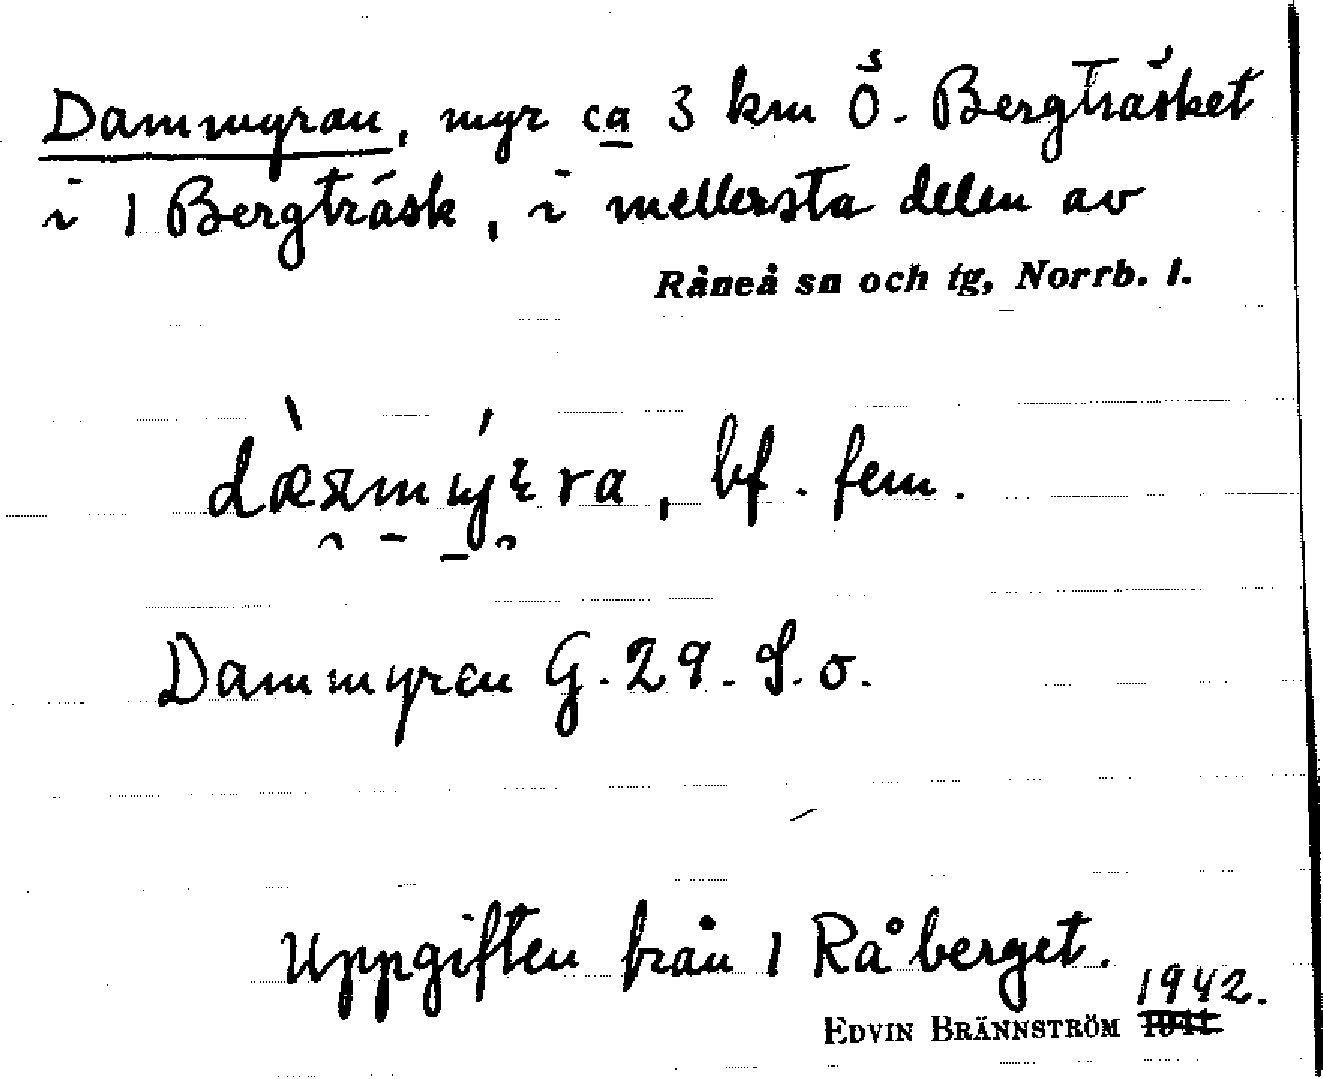 Dammyran, myr ca 3 km Ö. Bergträsket
i 1 Bergträsk, i mellersta delen av
Råneå sn och tg, Norrb. l.
bf. fem.
Dammyren G. 29. S. o.
Uppgiften från 1 Råberget.
1942.
EDVIN BRÄNNSTRÖM 1941